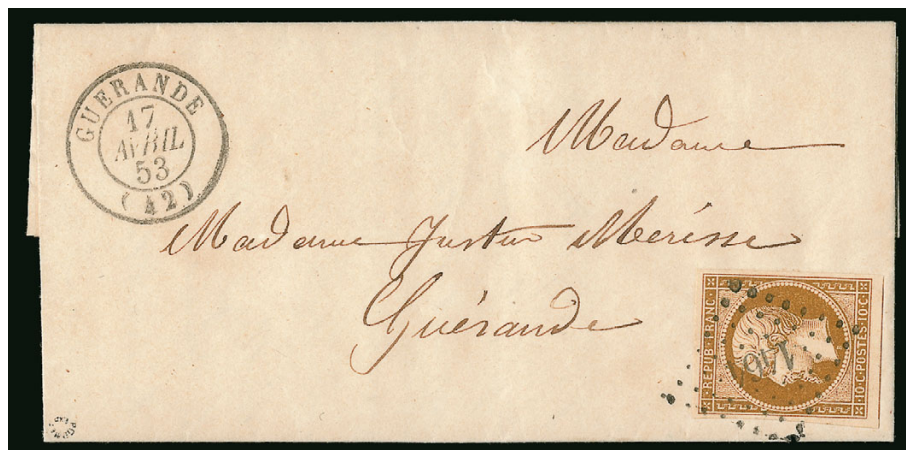 GUERANDE
17
AVRIL
53
(42)
Madame
Madame Justin Merisse
Guérande
REPUB. FRANC.
10·C·POSTES·10·C·